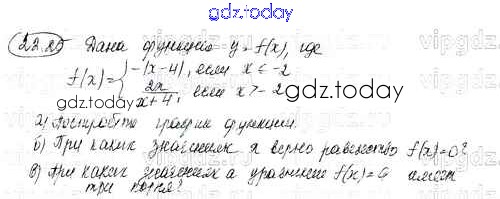 gdz.today
22.25 Дана функция y = f(x), где
f(x) = { -|x-4|, если x ≤ -2
2x/x+4, если x > -2
gdz.today
gdz.today
а) Постройте график функции.
б) При каких значениях x верно равенство f(x)=0?
в) При каких значениях a уравнение f(x)=a имеет
три корня?